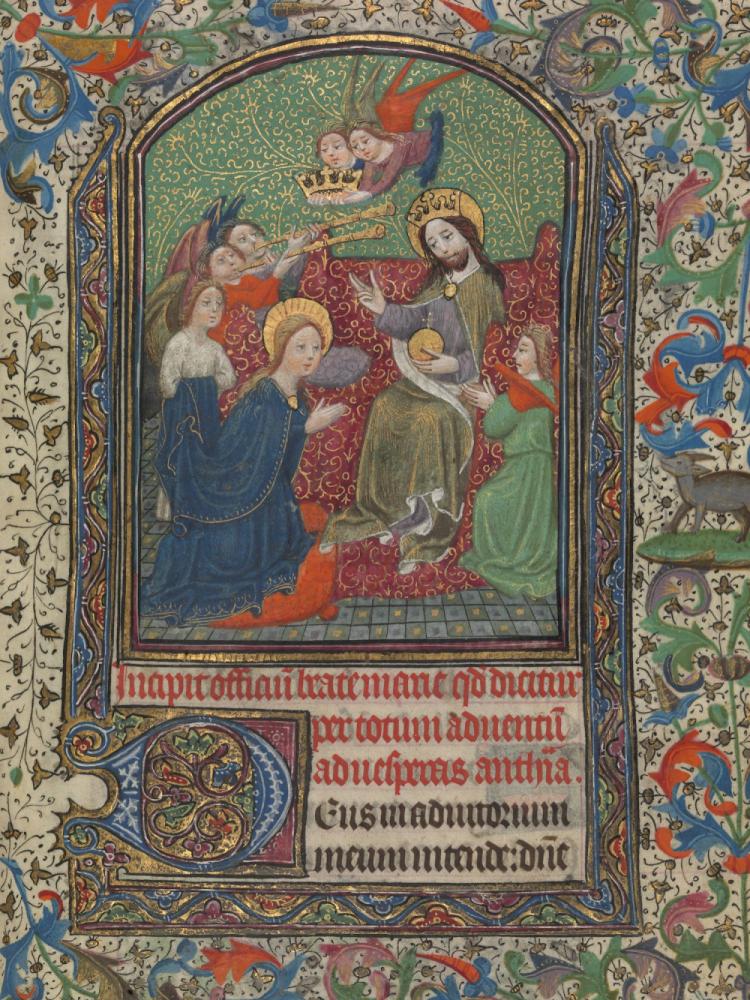 Incipit officiū beate marie qd dicitur
per totum adventū
ad vesperas anthīa.
Deus in adiutorium
meum intende: dn̄e